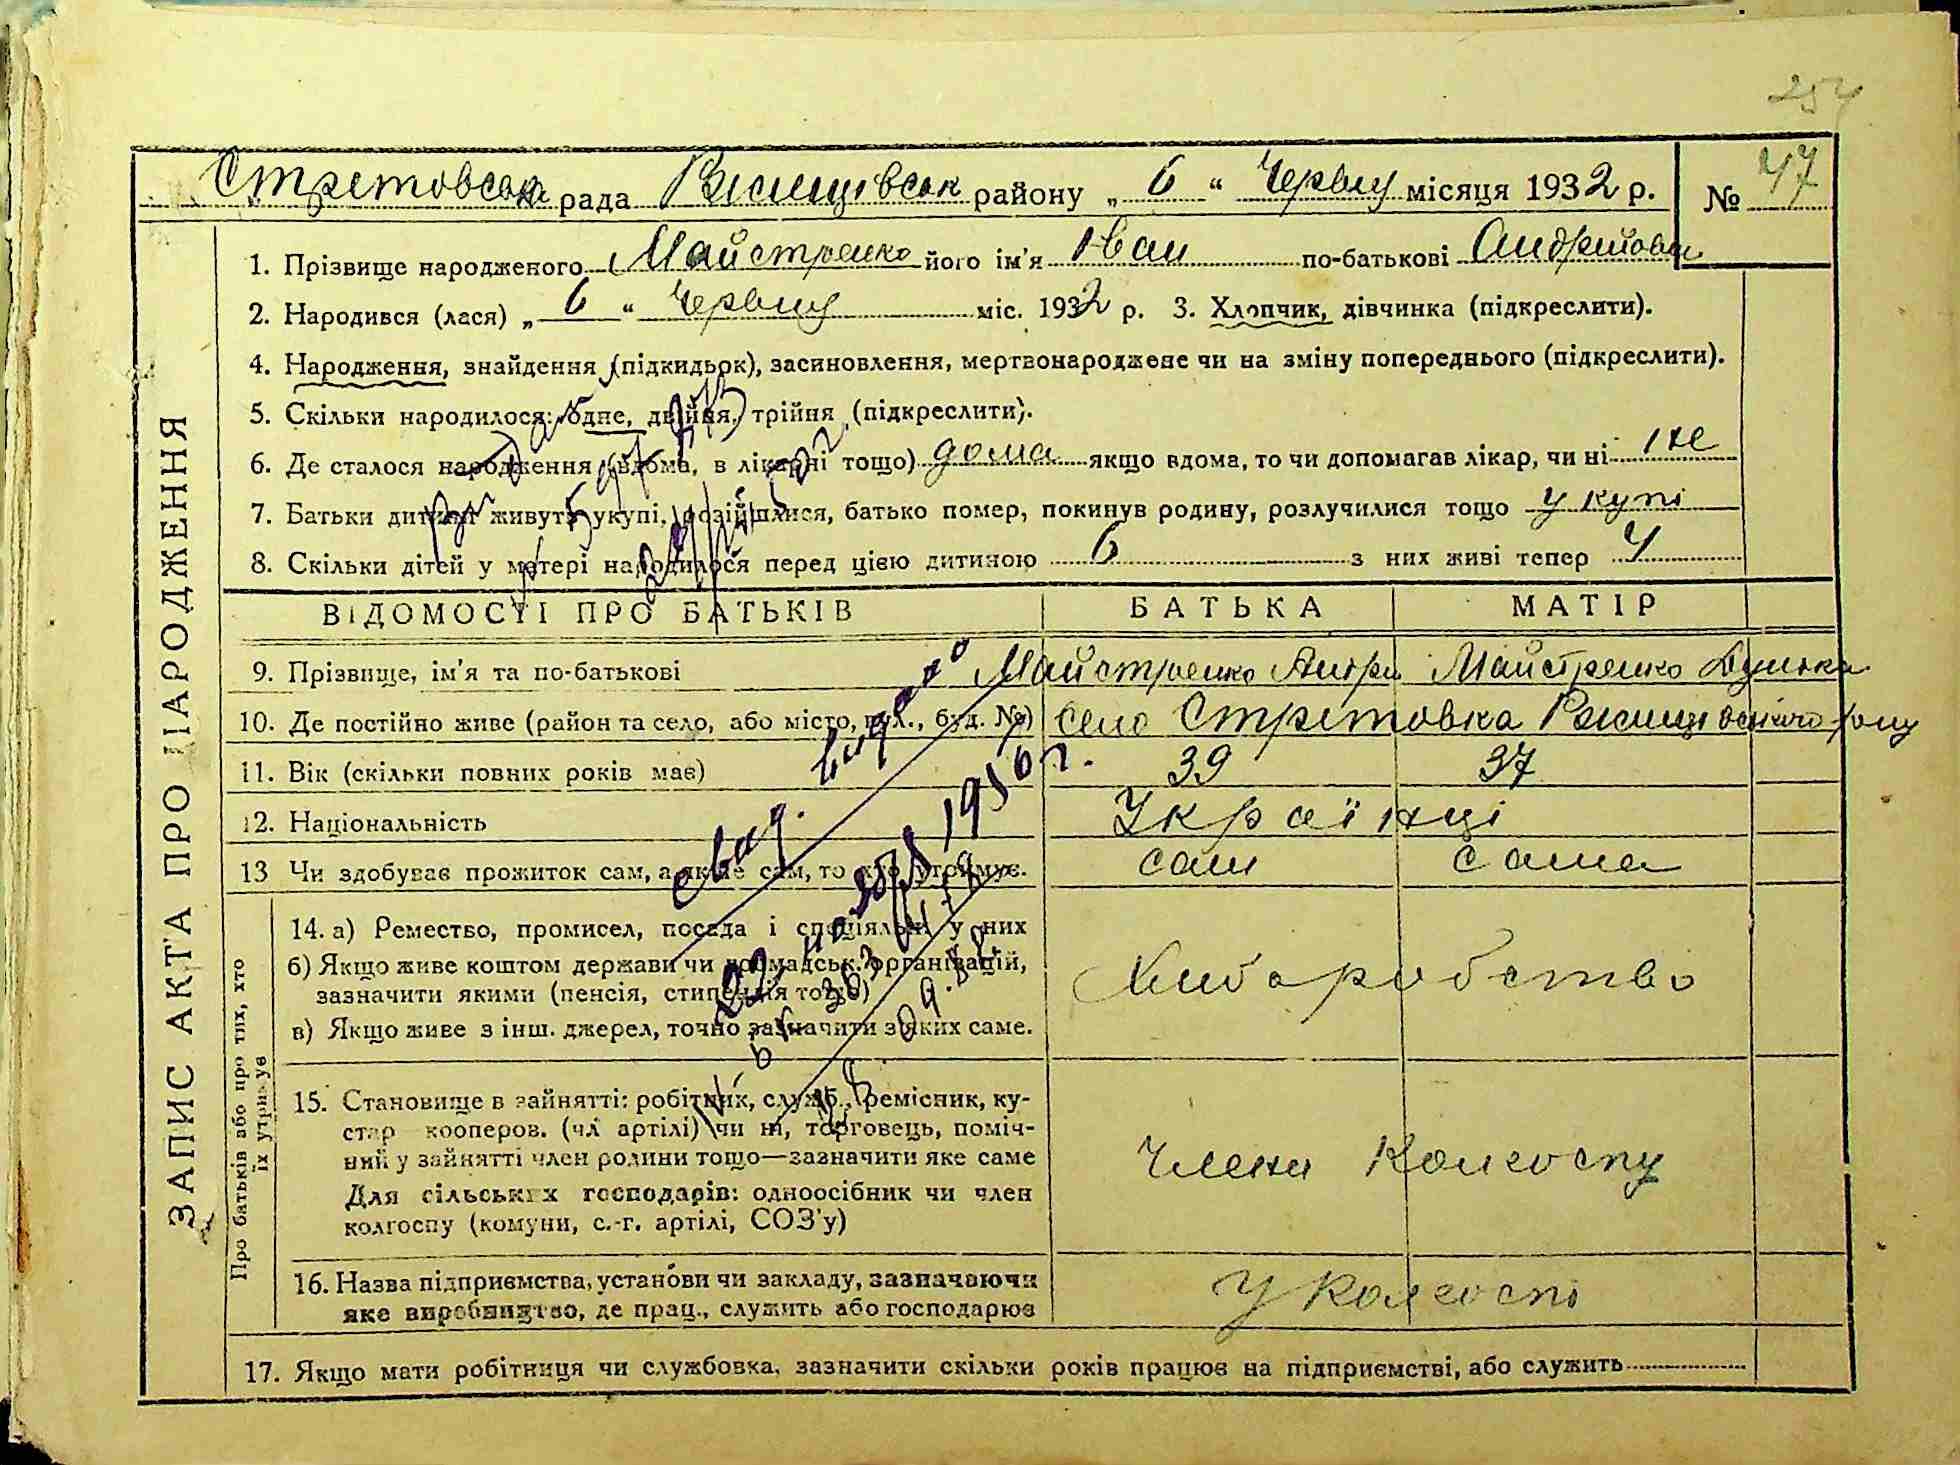 254
Стретовська рада Ржищівськ району „ 6 “ Червня місяця 1932 р. № 47
ЗАПИС АКТА ПРО НАРОДЖЕННЯ
1. Прізвище народженого Майстренко його ім'я Іван по-батькові Андрійович
2. Народився (лася) „ 6 “ Червня міс. 1932 р. 3. Хлопчик, дівчинка (підкреслити).
4. Народження, знайдення (підкидьок), засиновлення, мертвонароджене чи на зміну попереднього (підкреслити).
5. Скільки народилося: одне, двійня, трійня (підкреслити).
6. Де сталося народження (вдома, в лікарні тощо) дома якщо вдома, то чи допомагав лікар, чи ні
7. Батьки дитини живуть укупі, розійшлися, батько помер, покинув родину, розлучилися тощо у купі
8. Скільки дітей у матері народилося перед цією дитиною 6 з них живі тепер 4
ВІДОМОСТІ ПРО БАТЬКІВ БАТЬКА МАТІР
9. Прізвище, ім'я та по-батькові Майстренко Андрі Майстренко
10. Де постійно живе (район та село, або місто, вул., буд. №) село Стретовка Ржищівського
11. Вік (скільки повних років має) 39 37
12. Національність Українці
13 Чи здобував прожиток сам, а як не сам, то хто утримує. сам сама
Про батьків або про тих, хто їх утримує
14. а) Ремество, промисел, посада і спеціяльн у них
б) Якщо живе коштом держави чи громадськ. організацій,
зазначити якими (пенсія, стипендія тощо)
в) Якщо живе з інш. джерел, точно зазначити з яких саме.
Хліборобство
15. Становище в зайнятті: робітник, служб., ремісник, ку-
стар кооперов. (чл артілі) чи ні, торговець, поміч-
ний у зайнятті член родини тощо—зазначити яке саме
Для сільських господарів: одноосібник чи член
колгоспу (комуни, с.-г. артілі, СОЗ'у)
Члени Колгоспу
16. Назва підприємства, установи чи закладу, зазначаючи
яке виробництво, де прац., служить або господарює
У Колгоспі
17. Якщо мати робітниця чи службовка, зазначити скільки років працює на підприємстві, або служить
свид. выдано
1956 г.